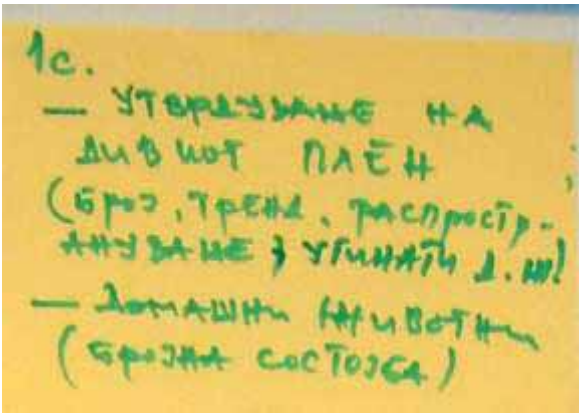 1с.
— УТВРДУВАЊЕ НА
ДИВИОТ ПЛЕН
(БРОЈ, ТРЕНД, РАСПРОСТР-
АНУВАЊЕ, УГИНАТИ Д.Ж!
— ДОМАШНИ ЖИВОТНИ
(БРОЈНА СОСТОЈБА)